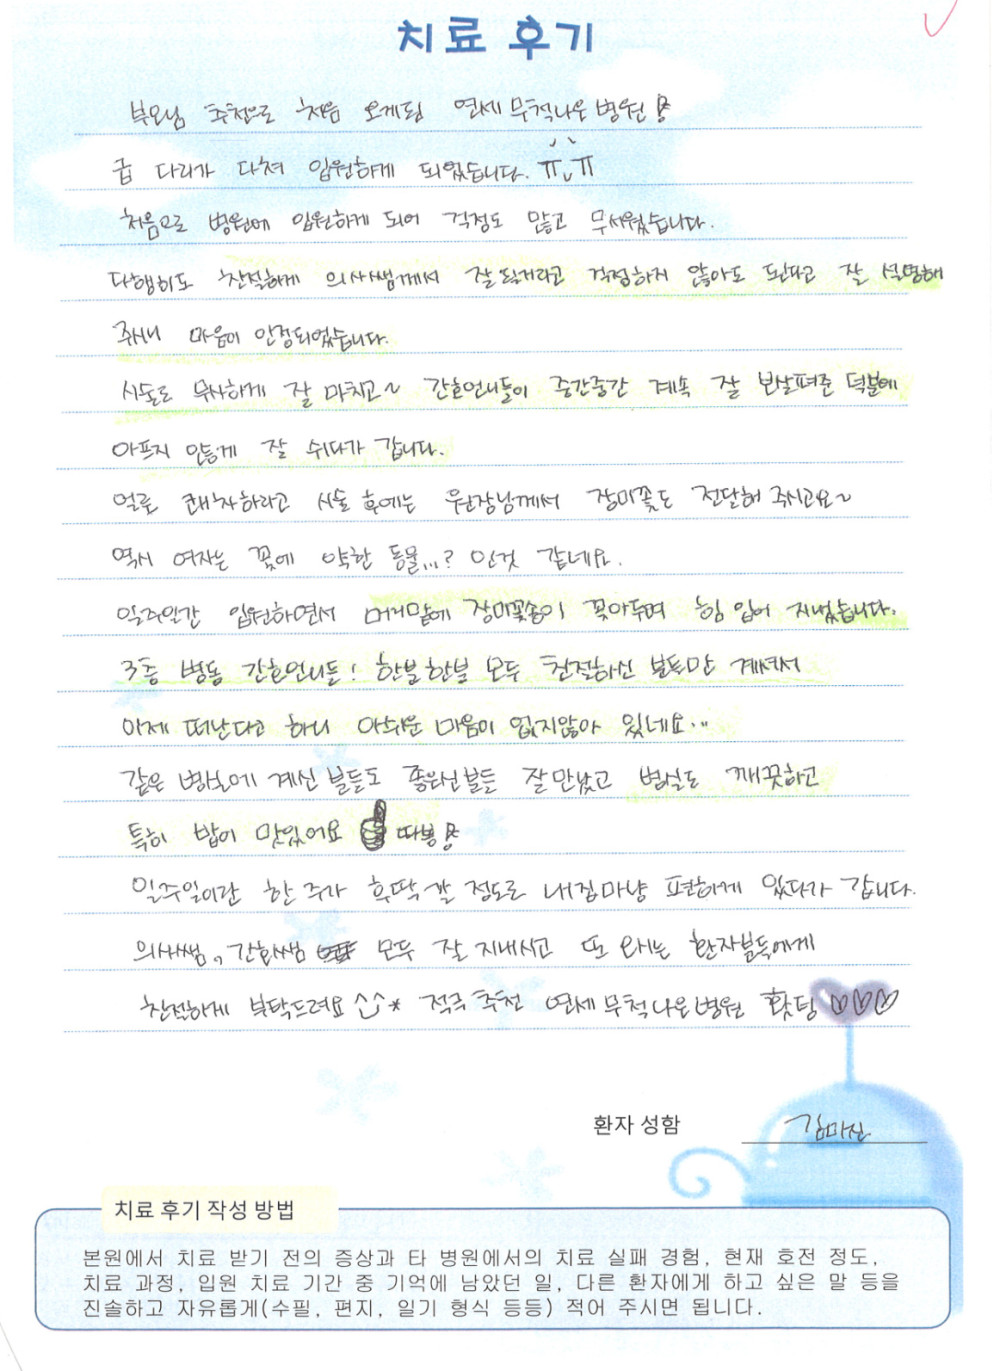 치료 후기
부모님 추천으로 처음 오게된 연세무척나은병원!
급 다리가 다쳐 입원하게 되었습니다. ㅠ.ㅠ
처음으로 병원에 입원하게 되어 걱정도 많고 무서웠습니다.
다행히도 친절하게 의사쌤께서 잘 될거라고 걱정하지 않아도 된다고 잘 설명해
주시니 마음이 안정되었습니다.
시술도 무사하게 잘 마치고~ 간호언니들이 중간중간 계속 잘 보살펴준 덕분에
아프지 않게 잘 쉬다가 갑니다.
얼른 쾌차하라고 시술 후에는 원장님께서 장미꽃도 전달해 주시고요~
역시 여자는 꽃에 약한 동물...? 인것 같네요.
일주일간 입원하면서 머리맡에 장미꽃송이 꽂아두며 힘 입어 지냈습니다.
3층 병동 간호언니들! 한분한분 모두 친절하신 분들만 계셔서
이제 떠난다고 하니 아쉬운 마음이 없지않아 있네요..
같은 병실에 계신 분들도 좋으신분들 잘 만났고 병실도 깨끗하고
특히 밥이 맛있어요 따봉!
일주일이란 한 주가 후딱 갈 정도로 내집마냥 편하게 있다가 갑니다.
의사쌤, 간호쌤 모두 잘 지내시고 또 오시는 환자분들에게
친절하게 부탁드려요 ^^* 적극 추천 연세무척나은병원 홧팅 ♡♡♡
환자 성함 김미진
치료 후기 작성 방법
본원에서 치료 받기 전의 증상과 타 병원에서의 치료 실패 경험, 현재 호전 정도,
치료 과정, 입원 치료 기간 중 기억에 남았던 일, 다른 환자에게 하고 싶은 말 등을
진솔하고 자유롭게(수필, 편지, 일기 형식 등등) 적어 주시면 됩니다.